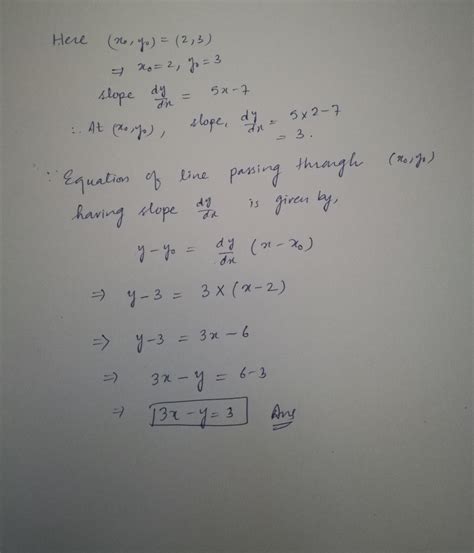 Here (x₀, y₀) = (2,3)
⇒ x₀ = 2, y₀ = 3
slope dy/dx = 5x-7
∴ At (x₀,y₀), slope, dy/dx = 5×2-7
= 3.
∵ Equation of line passing through (x₀,y₀)
having slope dy/dx is given by,
y-y₀ = dy/dx (x-x₀)
⇒ y-3 = 3×(x-2)
⇒ y-3 = 3x-6
⇒ 3x-y = 6-3
⇒ 3x-y=3 Ans